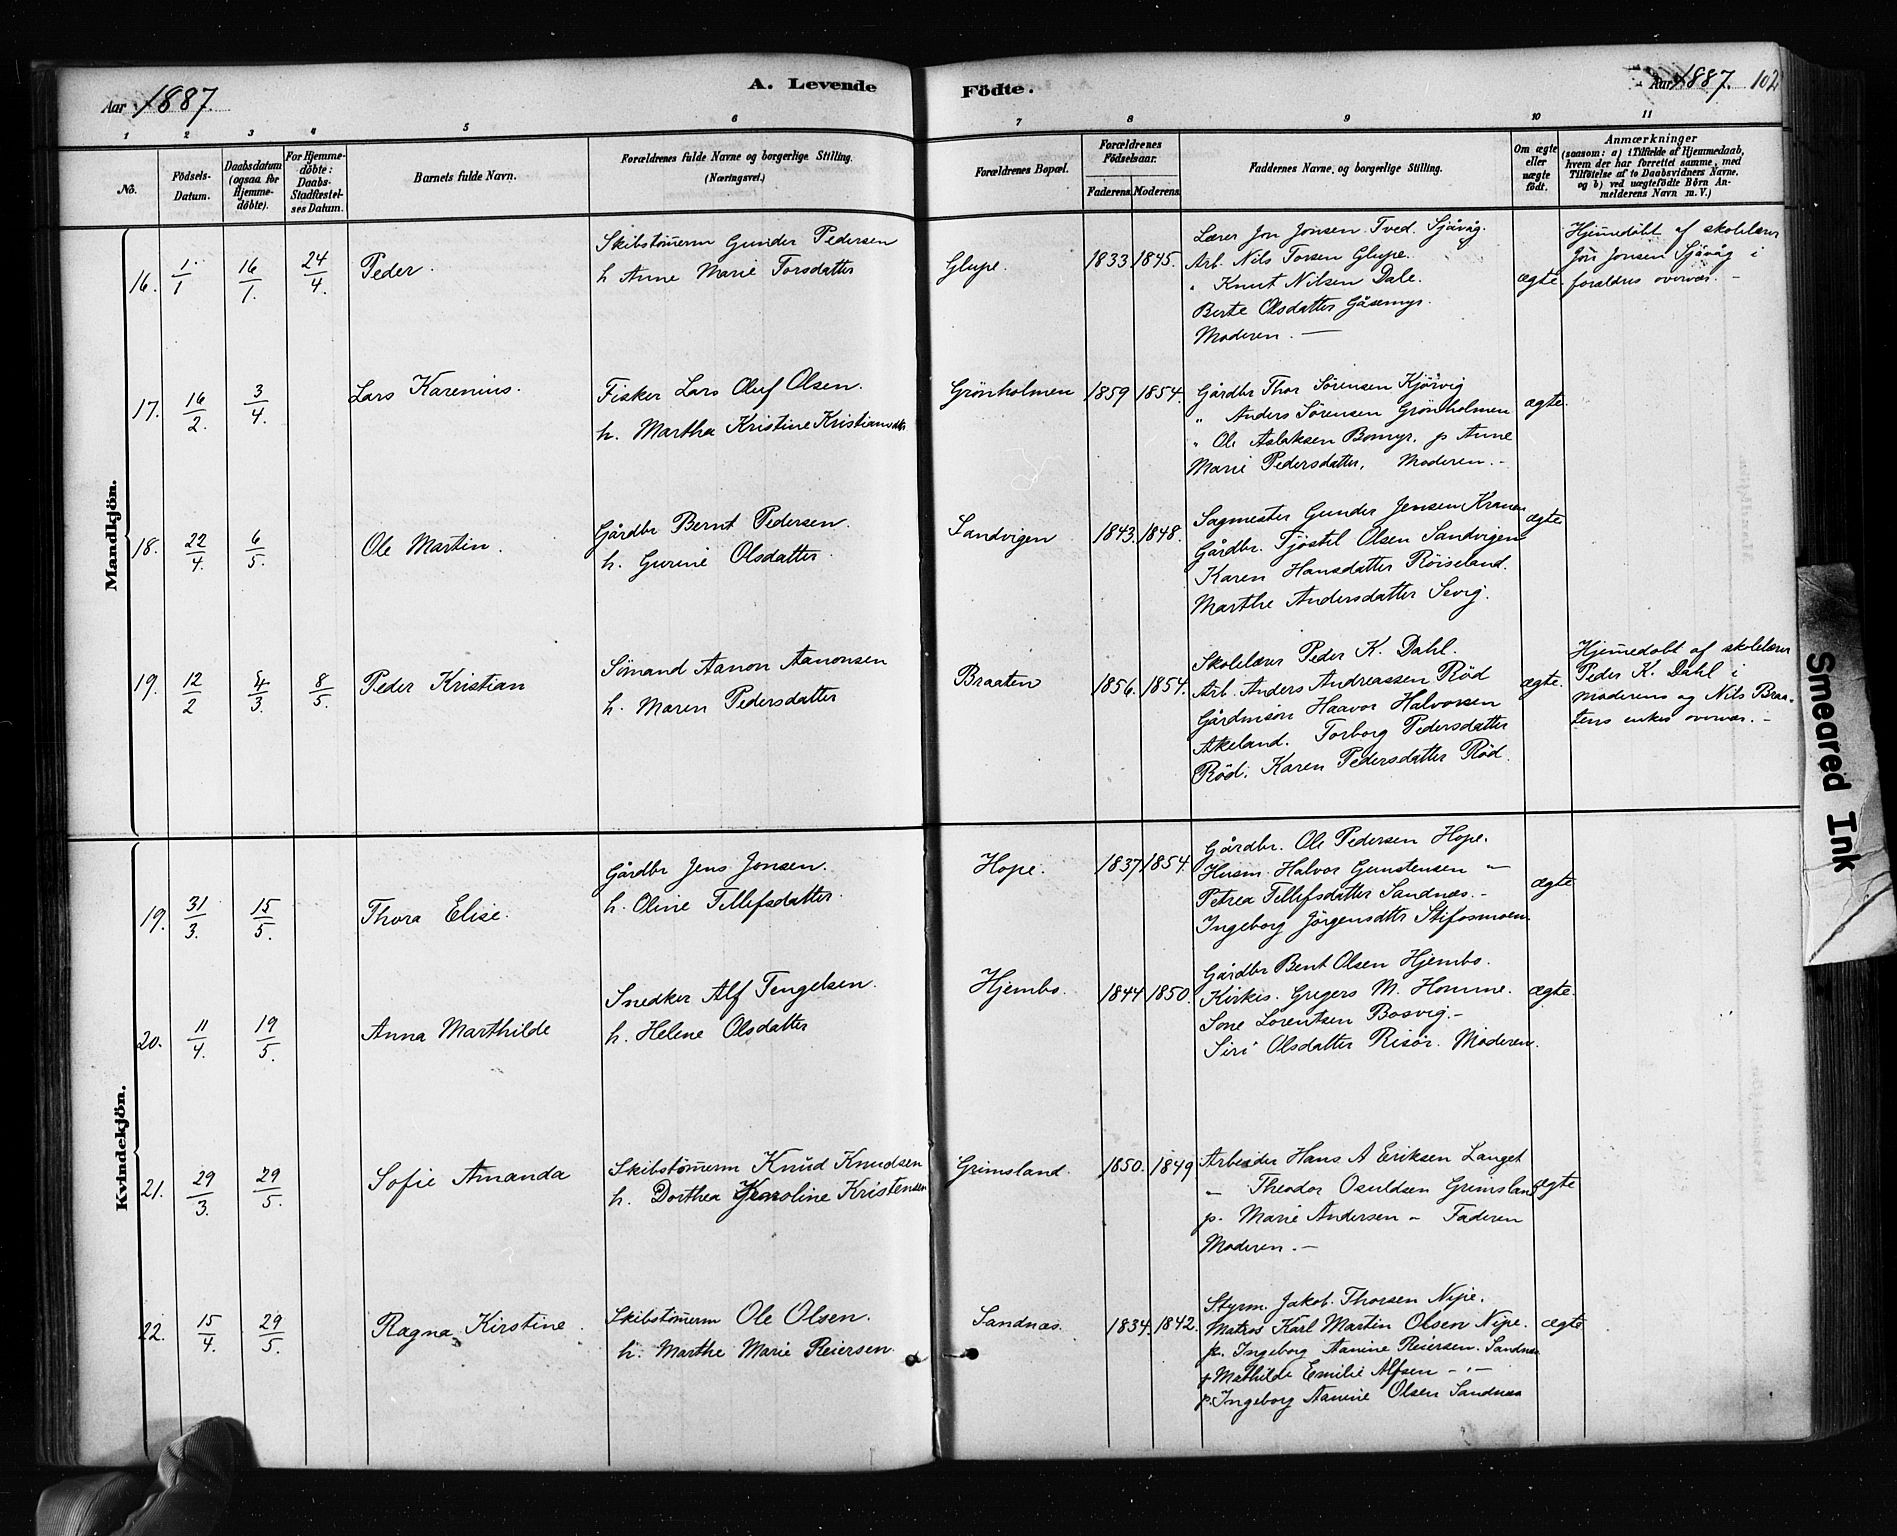 Aar 1887.
A. Levende
Födte.
Aar 1887. 102
1 2 3 4 5 6 7 8 9 10 11
No.
Födsels-Datum.
Daabsdatum (ogsaa for Hjemme-döbte).
For Hjemme-döbte: Daabs-Stadfæstel-ses Datum.
Barnets fulde Navn.
Forældrenes fulde Navne og borgerlige Stilling.
(Næringsvei.)
Forældrenes Bopæl.
Forældrenes Födselsaar.
Faderens. Moderens.
Faddernes Navne, og borgerlige Stilling.
Om ægte eller uægte födt.
Anmærkninger
(saasom: a) i Tilfælde af Hjemmedaab, hvem der har forrettet samme, med Tilföielse af to Daabsvidners Navne, og b) ved uægtefödte Börn Anmelderens Navn m. V.)
Mandkjön.
16. 1/1 16/1. 24/4. Peder.
Skibstømerm Gunder Pedersen
h Anne Marie Torsdatter
Glupe. 1833. 1845.
Lærer Jon Jonsen Tved. Sjåvåg.
Arb. Nils Torsen Glupe.
" Knut Nilsen Dale.
Berte Olsdatter Gåsemyr.
Moderen. —
ægte.
Hjemmedöbt af skolelærer
Jon Jonsen Sjåvåg i
forældres overvær. —
17. 16/2. 3/4. Lars Karenius.
Fisker Lars Oluf Olsen.
h. Martha Kristine Kristiansdtr
Grönholmen 1859 1854.
Gårdbr Thor Sörensen Kjörvig
" Anders Sörensen Grönholmen
" Ole Aslaksen Bomyr. p Anne
Marie Pedersdatter, Moderen. —
ægte.
18. 22/4. 6/5. Ole Martin.
Gårdbr Bernt Pedersen.
h. Gurine Olsdatter
Sandvigen 1843. 1848.
Sagmester Gunder Jensen Kranen
Gårdbr. Tjöstel Olsen Sandvigen
Karen Hansdatter Röiseland.
Marthe Andersdatter Sevig.
ægte
19. 12/2 4/3. 8/5. Peder Kristian
Sömand Aanon Aanonsen
h. Maren Pedersdatter
Braaten 1856. 1854.
Skolelærer Peder K. Dahl.
Arb. Anders Andreassen Röd
Gårdmsön Haavor Halvorsen
Akeland. Torborg Pedersdatter
Röd. Karen Pedersdatter Röd.
ægte.
Hjemmedobt af skolelærer
Peder K. Dahl i
moderens og Nils Braa-
tens enkes overvær. —
Kvindekjön.
19. 31/3. 15/5. Thora Elise.
Gårdbr Jens Jonsen.
h. Oline Tellefsdatter.
Hope. 1837 1854.
Gårdbr. Ole Pedersen Hope.
Husm. Halvor Gunstensen "
Petrea Tellefsdatter Sandnæs. —
Ingeborg Jörgensdtr Stifosmoen
ægte
20. 11/4. 19/5. Anna Marthilde
Snedker Alf Tengelsen.
h. Helene Olsdatter
Hjembo. 1844 1850.
Gårdbr Bent Olsen Hjembo.
Kirkes. Gregers M. Homme.
Sone Lorentsen Bosvig. —
Siri Olsdatter Risör. Moderen.
ægte.
21. 29/3. 29/5. Sofie Amanda
Skibstømerm Knud Knudsen
h. Dorthea Karoline Kristensen
Grimsland. 1850. 1849
Arbeider Hans A Eriksen Langet
" Theodor Osuldsen Grimsland
p. Marie Andersen " Faderen
Moderen. —
ægte
22. 15/4. 29/5. Ragna Kirstine.
Skibstømerm Ole Olsen.
h. Marthe Marie Reiersen.
Sandnæs. 1834. 1842.
Styrm. Jakob Thorsen Nipe.
Matros Karl Martin Olsen Nipe.
p. Ingeborg Aanine Reiersen. Sandnæs
p Mathilde Emilie Alfsen — " —
p. Ingeborg Aanine Olsen Sandnæs
ægte
Smeared Ink